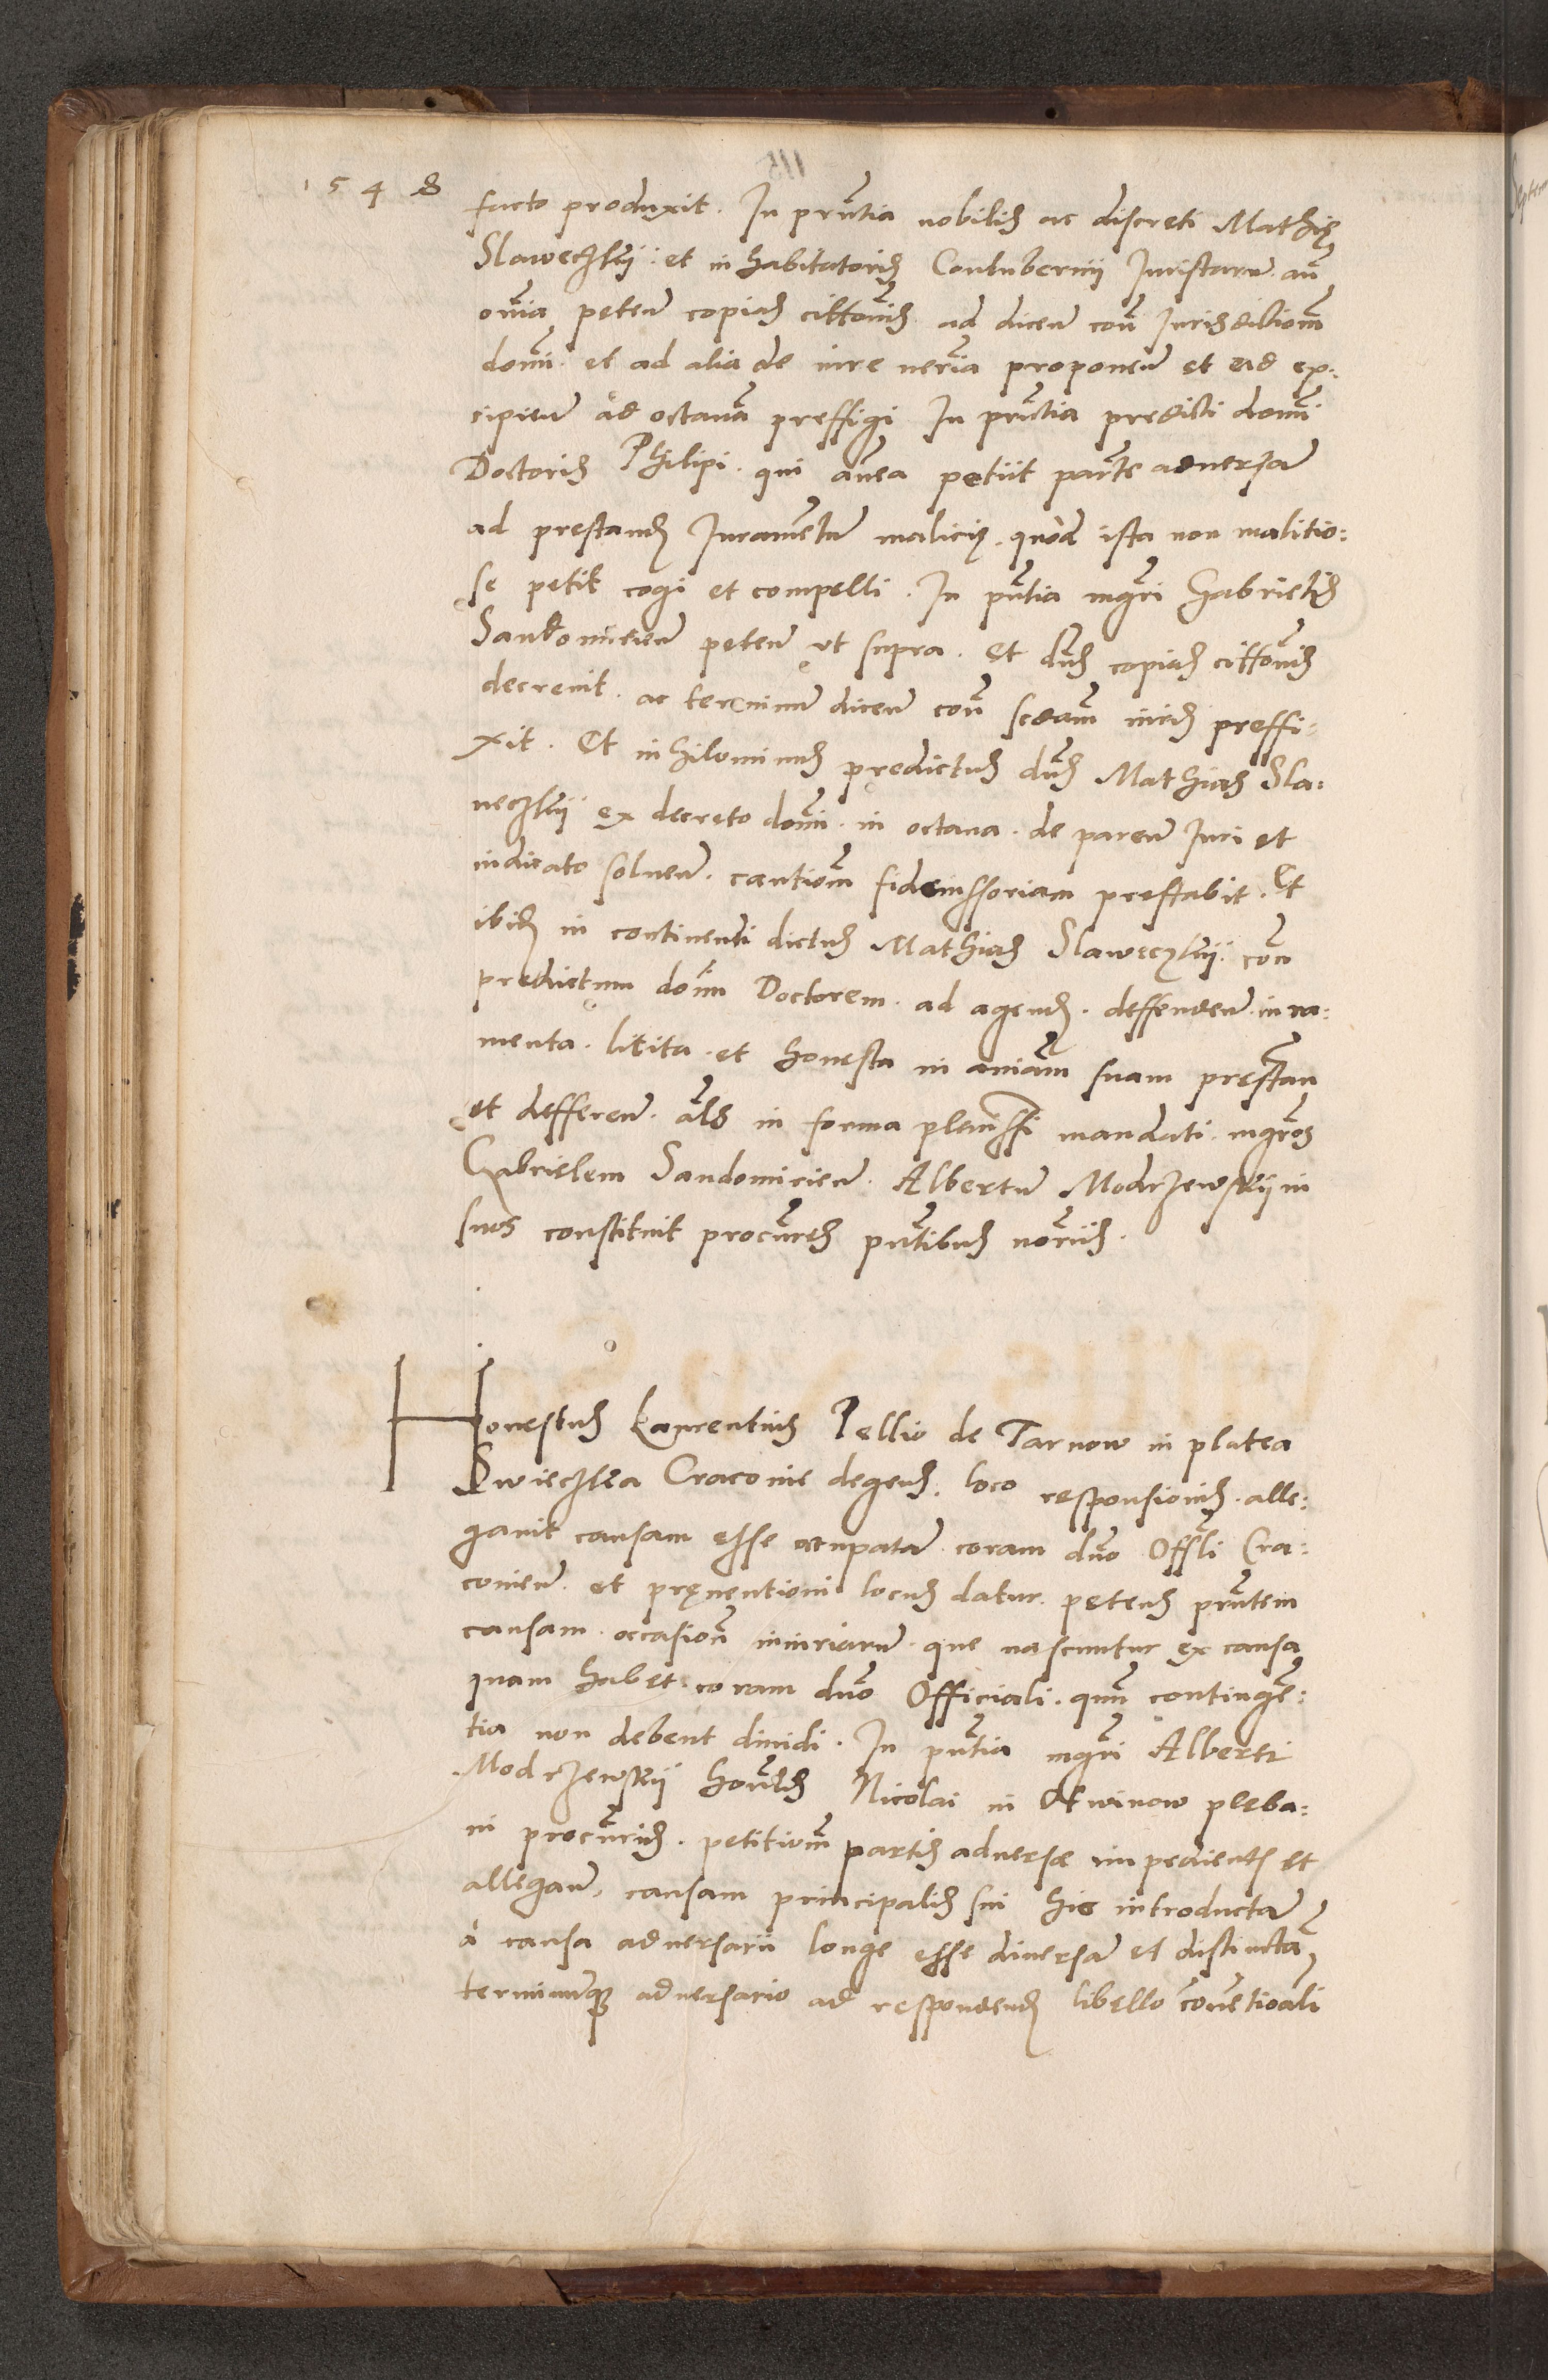 1548
facto produxit. In pñtia nobilis ac discreti Mathię
Slaweczkij. et inhabitatoris Contubernij Juristarũ añ
oĩnia peteñ copias cittõnis ad diceñ coñ Jurisdictioñ
domi. et ad alia de iure neria proponeñ et ad ex:
cipieñ ad octauã preffigi In pñtia predicti domi
Doctoris Philipi. qui añea petiit parte aduersã
ad prestand Juramentũ malicię. quod ista non malitio:
se petit cogi et compelli. In pñtia mgri Gabrielis
Sandomirieñ peteñ vt supra. Et dñs copias cittõnis
decreuit. ac terminũ diceñ coñ scdam iurid preffi:
xit. Et nihilominus prędictus dñs Mathias Sla:
weczkij ex decreto domi. in octaua. de pareñ Juri et
iudicato solueñ. cautiom fideiussoriam prestabit. Et
ibid in continenti dictus Mathias Slaweczkij. coñ
prędictum doim Doctorem. ad agend. deffendeñ. iura:
menta. licita. et honesta in aniam suam prestan
et defferen. als in forma plenissi mandati. mgros
Gabrielem Sandomirieñ. Albertũ Modrzewskij in
suos constituit procures pñtibus noriis.
Honestus Laurentius Pellio de Tarnow in platea
Swieczka Cracouie degens. loco responsionis. alle:
gauit causam esse occupatã coram dño Offli Cra:
couieñ. et pręuentioni locus datur. petens pñtem
causam. occasioñ iniuriarũ. que nascuntur ex causa
quam habet. coram dño Officiali. quũ continge:
tia non debent diuidi. In pñtia mgri Alberti
Modrzewskij honlis Nicolai in Okwinow pleba:
ni procuris. petitiom partis aduersae impedients et
allegañ, causam principalis sui hic introductã
à causa adversarii longe esse diuersã et distinctã,
terminũq adversario ad respondend libello conuetioali